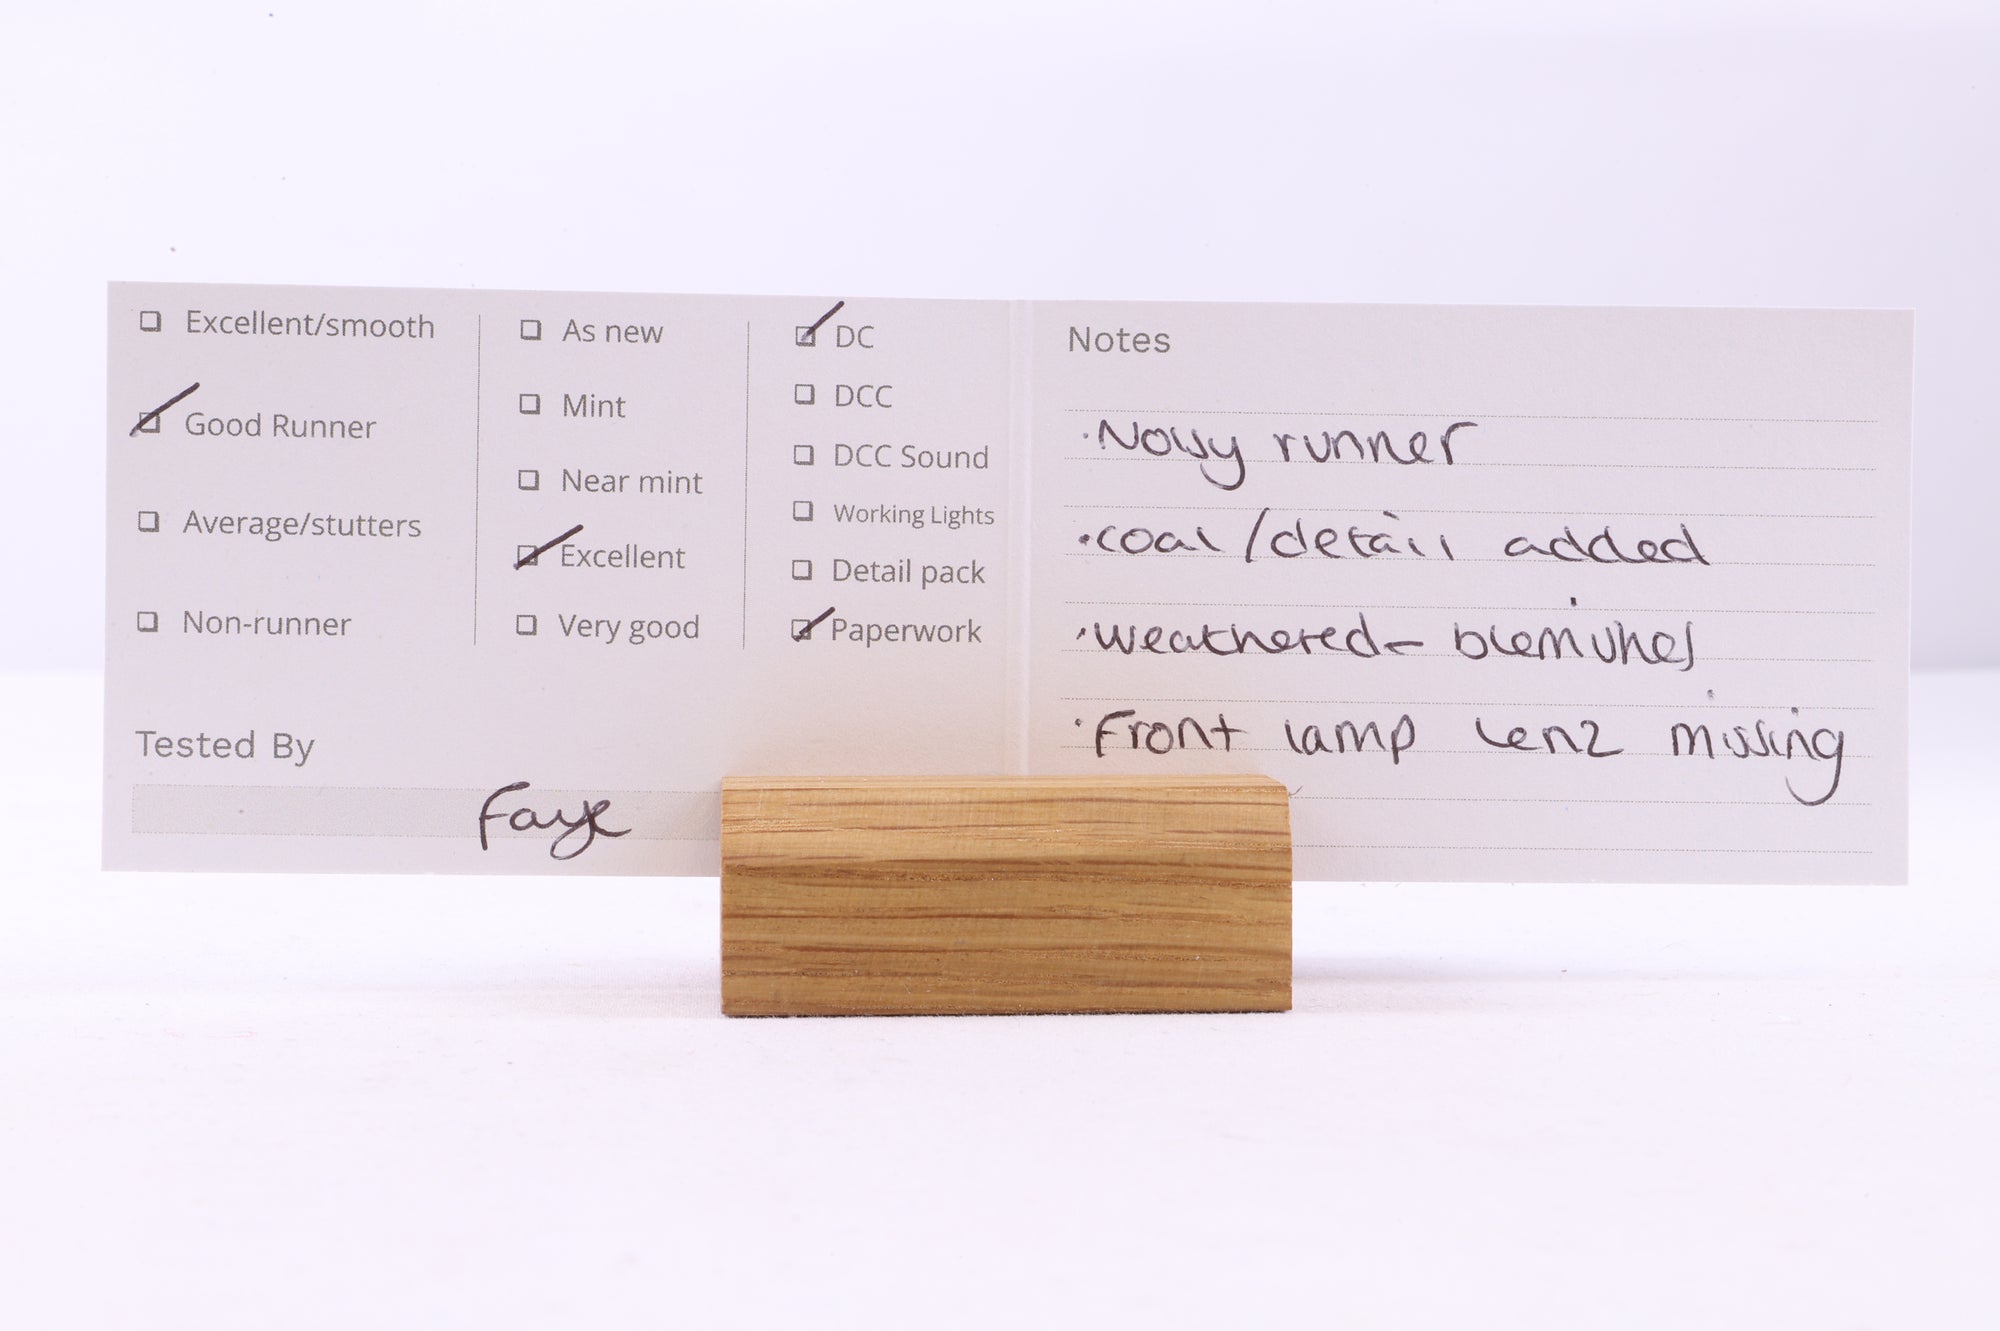 Excellent/smooth
Good Runner
Average/stutters
Non-runner
As new
Mint
Near mint
Excellent
Very good
DC
DCC
DCC Sound
Working Lights
Detail pack
Paperwork
Tested By
Faye
Notes
·Noisy runner
·coal/detail added
·weathered- blemishes
·Front lamp lens missing